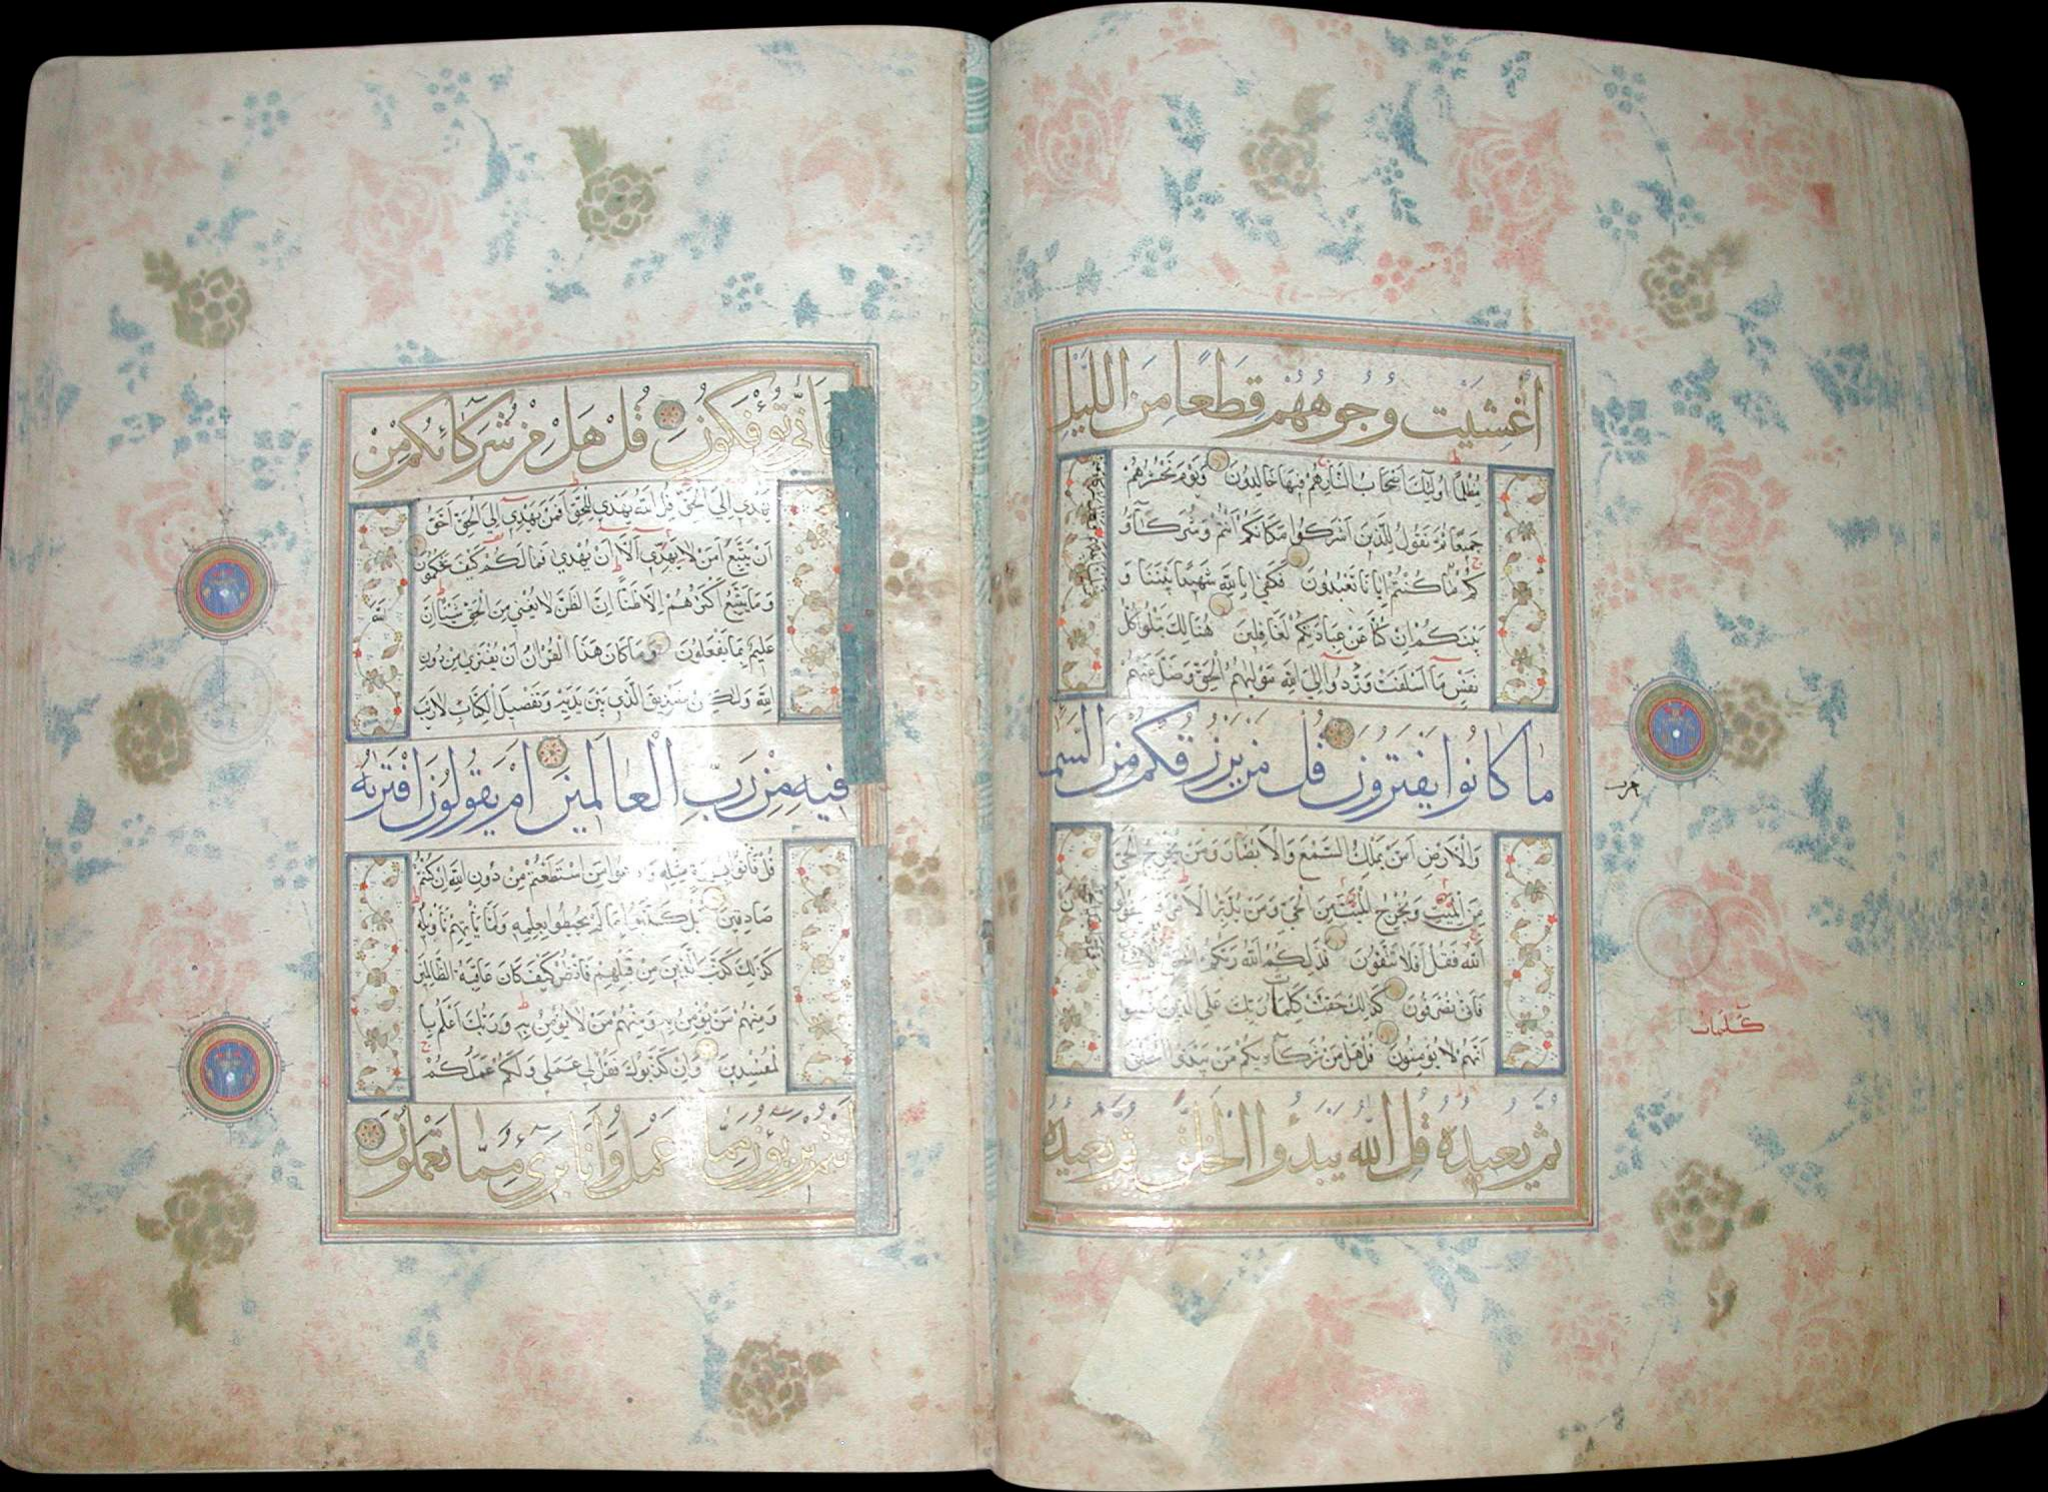 أُغْشِيَتْ وُجُوهُهُمْ قِطَعًا مِنَ اللَّيْلِ
مُظْلِمًا اُولٰئِكَ اَصْحَابُ النَّارِ هُمْ فِيهَا خَالِدُونَ وَيَوْمَ نَحْشُرُهُمْ
جَمِيعًا ثُمَّ نَقُولُ لِلَّذِينَ اَشْرَكُوا مَكَانَكُمْ اَنْتُمْ وَشُرَكَآؤُ
كُمْ مَا كُنْتُمْ اِيَّانَا تَعْبُدُونَ فَكَفىٰ بِاللّٰهِ شَهِيدًا بَيْنَنَا وَ
بَيْنَكُمْ اِنْ كُنَّا عَنْ عِبَادَتِكُمْ لَغَافِلِينَ هُنَالِكَ تَبْلُوا كُلُّ
نَفْسٍ مَا اَسْلَفَتْ وَرُدُّوا اِلَى اللّٰهِ مَوْلٰيهُمُ الْحَقِّ وَضَلَّ عَنْهُمْ
مَا كَانُوا يَفْتَرُونَ قُلْ مَنْ يَرْزُقُكُمْ مِنَ السَّمَا
وَالْاَرْضِ اَمَّنْ يَمْلِكُ السَّمْعَ وَالْاَبْصَارَ وَمَنْ يُخْرِجُ الْحَيَّ
مِنَ الْمَيِّتِ وَيُخْرِجُ الْمَيِّتَ مِنَ الْحَيِّ وَمَنْ يُدَبِّرُ الْاَمْرَ
اللّٰهُ فَقُلْ اَفَلَا تَتَّقُونَ فَذٰلِكُمُ اللّٰهُ رَبُّكُمُ الْحَقُّ
فَاَنّٰى تُصْرَفُونَ كَذٰلِكَ حَقَّتْ كَلِمَاتُ رَبِّكَ عَلَى الَّذِينَ فَسَقُوا
اَنَّهُمْ لَا يُؤْمِنُونَ قُلْ هَلْ مِنْ شُرَكَآئِكُمْ مَنْ يَبْدَؤُا الْخَلْقَ
ثُمَّ يُعِيدُهُ قُلِ اللّٰهُ يَبْدَؤُا الْخَلْقَ ثُمَّ يُعِيدُهُ
حزب
كلمات
فَاَنّٰى تُؤْفَكُونَ قُلْ هَلْ مِنْ شُرَكَائِكُمْ مَنْ
يَهْدِي اِلَى الْحَقِّ قُلِ اللّٰهُ يَهْدِي لِلْحَقِّ اَفَمَنْ يَهْدِي اِلَى الْحَقِّ اَحَقُّ
اَنْ يُتَّبَعَ اَمَّنْ لَا يَهِدِّي اِلَّا اَنْ يُهْدٰى فَمَا لَكُمْ كَيْفَ تَحْكُمُونَ
وَمَا يَتَّبِعُ اَكْثَرُهُمْ اِلَّا ظَنًّا اِنَّ الظَّنَّ لَا يُغْنِي مِنَ الْحَقِّ شَيْئًا اِنَّ
اللّٰهَ
عَلِيمٌ بِمَا يَفْعَلُونَ وَمَا كَانَ هٰذَا الْقُرْاٰنُ اَنْ يُفْتَرٰى مِنْ دُونِ
اللّٰهِ وَلٰكِنْ تَصْدِيقَ الَّذِي بَيْنَ يَدَيْهِ وَتَفْصِيلَ الْكِتَابِ لَا رَيْبَ
فِيهِ مِنْ رَبِّ الْعَالَمِينَ اَمْ يَقُولُونَ افْتَرٰيهُ
قُلْ فَاْتُوا بِسُورَةٍ مِثْلِهِ وَادْعُوا مَنِ اسْتَطَعْتُمْ مِنْ دُونِ اللّٰهِ اِنْ كُنْتُمْ
صَادِقِينَ بَلْ كَذَّبُوا بِمَا لَمْ يُحِيطُوا بِعِلْمِهِ وَلَمَّا يَاْتِهِمْ تَاْوِيلُهُ
كَذٰلِكَ كَذَّبَ الَّذِينَ مِنْ قَبْلِهِمْ فَانْظُرْ كَيْفَ كَانَ عَاقِبَةُ الظَّالِمِينَ
وَمِنْهُمْ مَنْ يُؤْمِنُ بِهِ وَمِنْهُمْ مَنْ لَا يُؤْمِنُ بِهِ وَرَبُّكَ اَعْلَمُ بِا
لْمُفْسِدِينَ وَاِنْ كَذَّبُوكَ فَقُلْ لِي عَمَلِي وَلَكُمْ عَمَلُكُمْ
اَنْتُمْ بَرِيؤُنَ مِمَّا اَعْمَلُ وَاَنَا بَرِيءٌ مِمَّا تَعْمَلُونَ